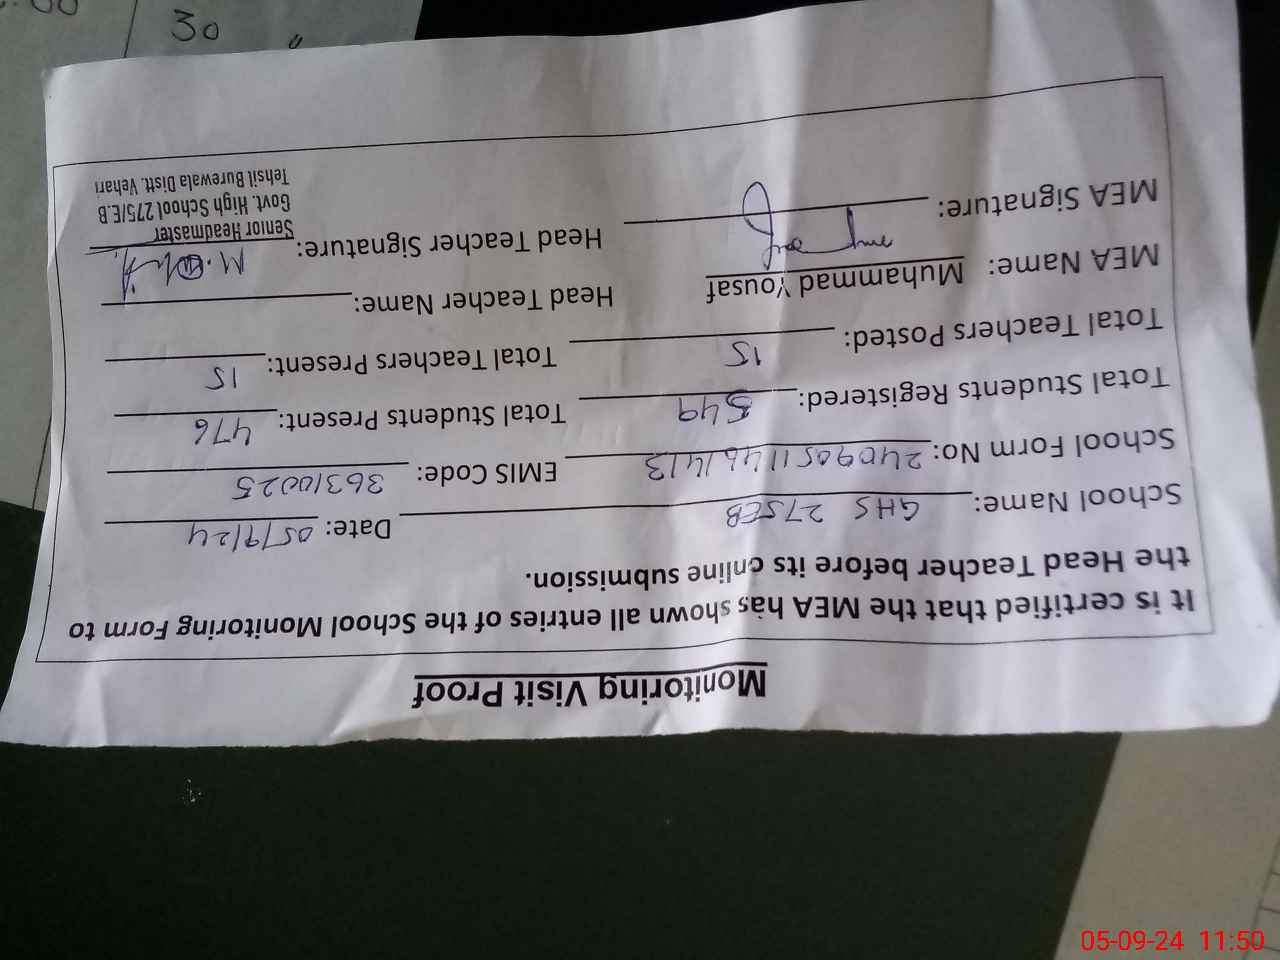 Monitoring Visit Proof
It is certified that the MEA has shown all entries of the School Monitoring Form to
the Head Teacher before its online submission.
School Name: GHS 275EB Date: 05/9/24
School Form No: 24090511461413 EMIS Code: 36310025
Total Students Registered: 549 Total Students Present: 476
Total Teachers Posted: 15 Total Teachers Present: 15
MEA Name: Muhammad Yousaf Head Teacher Name:
MEA Signature: Head Teacher Signature:
Senior Headmaster
Govt. High School 275/E.B
Tehsil Burewala Distt. Vehari
30 "
05-09-24 11:50